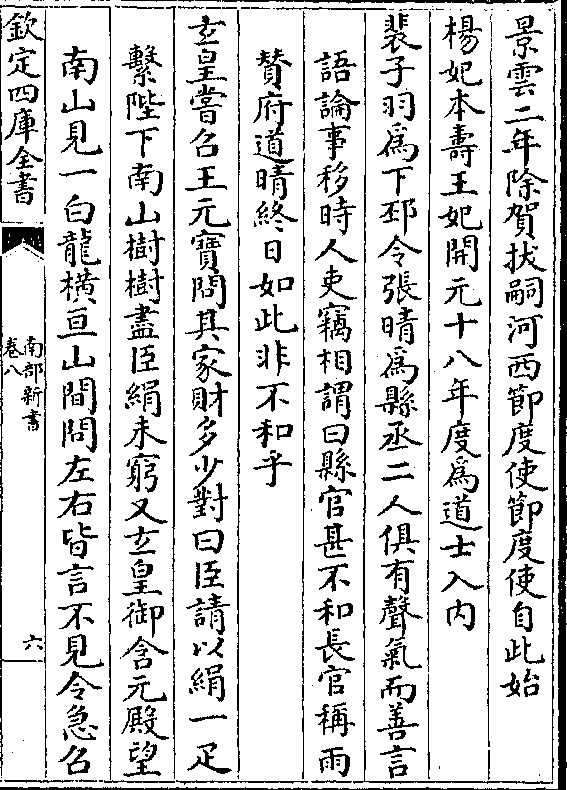 景雲二年除賀拔嗣河西節度使節度使自此始
楊妃本壽王妃開元十八年度爲道士入内
裴子羽爲下邳令張晴爲縣丞二人俱有聲氣而善言
語論事移時人吏竊相謂曰縣官甚不和長官稱雨
賛府道晴終日如此非不和乎
玄皇嘗召王元寶問其家財多少對曰臣請以絹一疋
繫陛下南山樹樹盡臣絹未窮又玄皇御含元殿望
南山見一白龍橫亘山間問左右皆言不見令急召
欽定四庫全書
南部新書
卷八
六